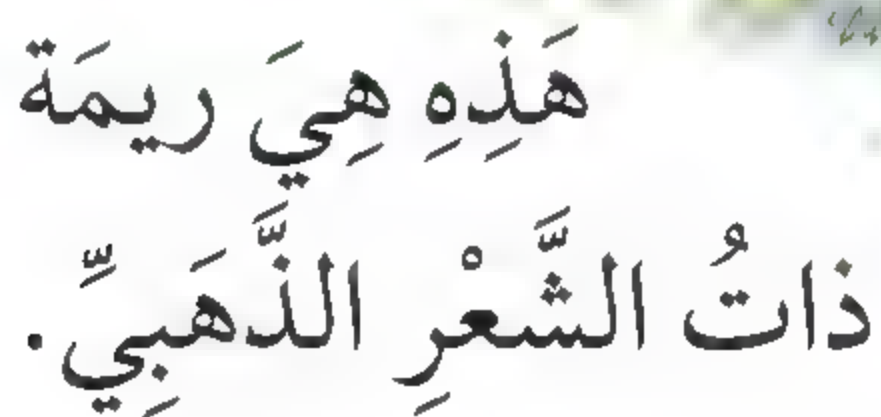 هَذِهِ هِيَ ريمَة
ذاتُ الشَّعْرِ الذَّهَبِيِّ.